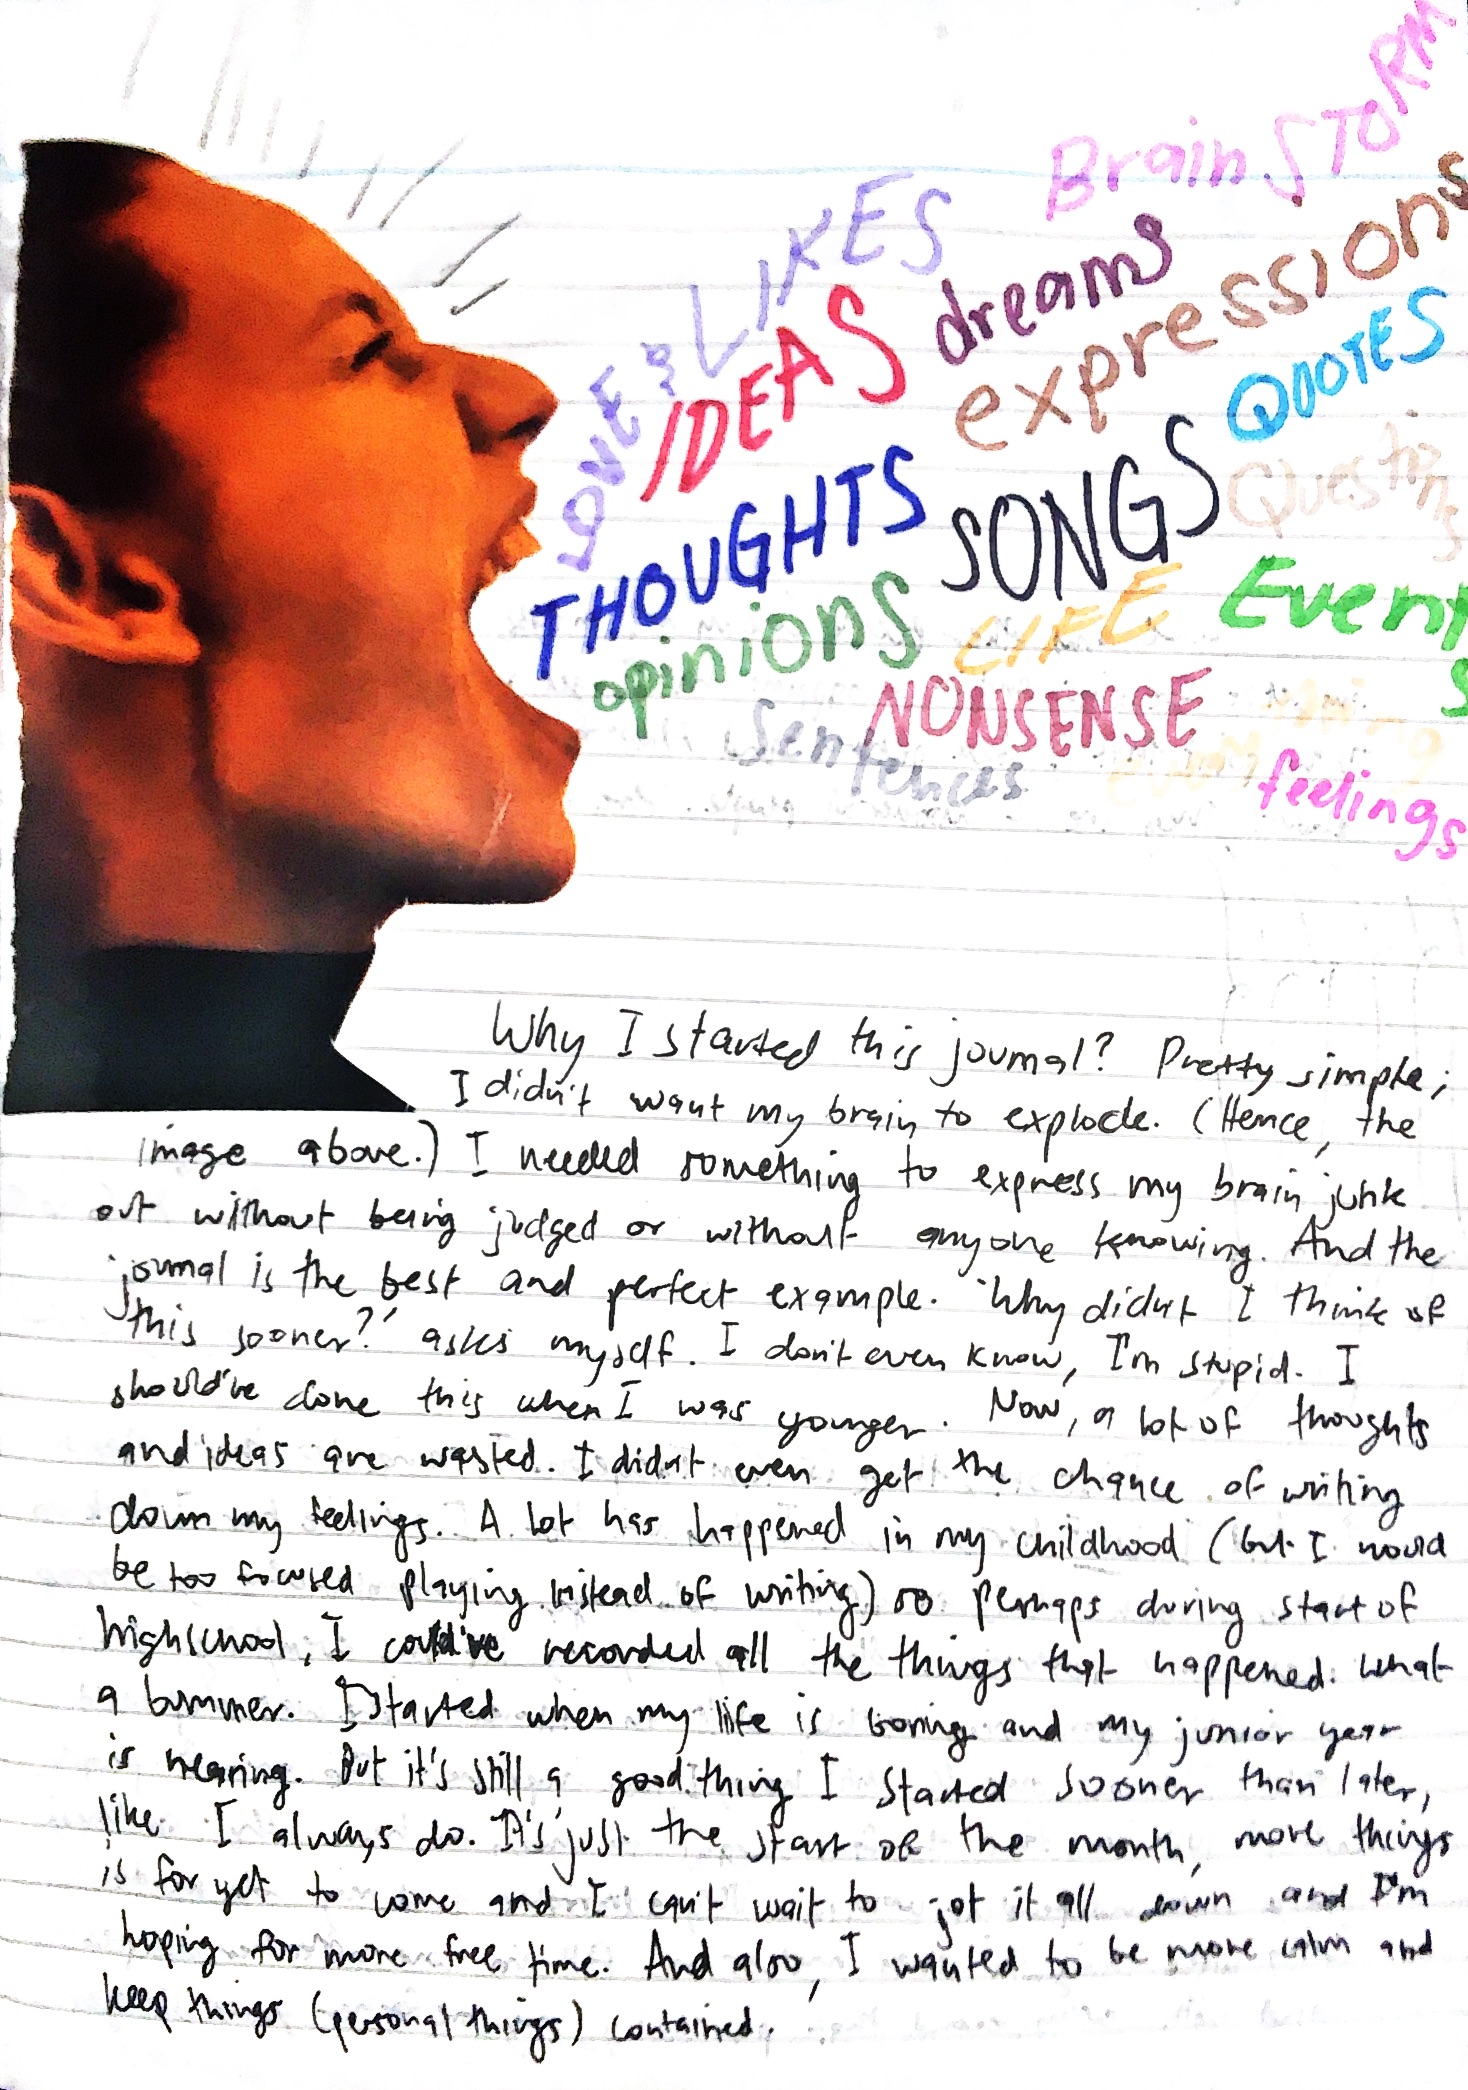 Brain STORM
LOVE & LIKES
IDEAS
dreams
expressions
QUOTES
THOUGHTS
SONGS
Questions
opinions
LIFE
Events
Sentences
NONSENSE
feelings
Why I started this journal? Pretty simple;
I didn't want my brain to explode. (Hence, the
image above.) I needed something to express my brain junk
out without being judged or without anyone knowing. And the
journal is the best and perfect example. 'Why didn't I think of
this sooner?' asks myself. I don't even know, I'm stupid. I
should've done this when I was younger. Now, a lot of thoughts
and ideas are wasted. I didn't even get the chance of writing
down my feelings. A lot has happened in my childhood (but I would
be too focused playing instead of writing) so perhaps during start of
highschool, I could've recorded all the things that happened. What
a bummer. I started when my life is boring and my junior year
is nearing. But it's still a good thing I started sooner than later,
like I always do. It's just the start of the month, more things
is for yet to come and I can't wait to jot it all down and I'm
hoping for more free time. And also, I wanted to be more calm and
keep things (personal things) contained.